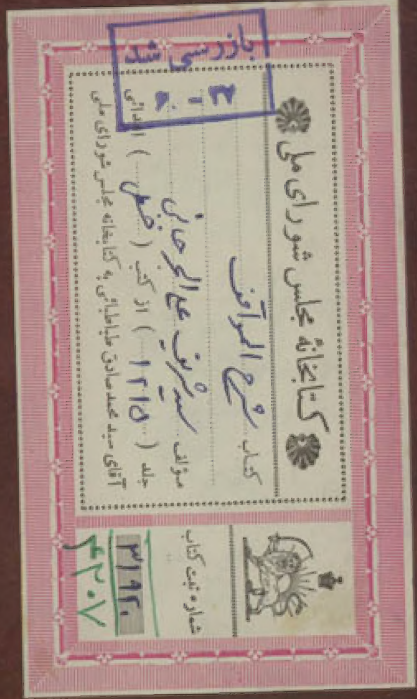 بازرسی شد
۳۰ - ۸
کتابخانهٔ مجلس شورای ملی
کتاب شرح المواقف
مؤلف سید شریف علی الجرجانی
جلد (۱۲۱۵) از کتب (خطی) اهدائی
آقای سید محمد صادق طباطبائی به کتابخانه مجلس شورای ملی
شماره ثبت کتاب
۳۱۹۲۰
۴۳۰۷